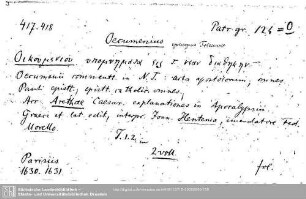 417.418
Patr. gr. 126 = 0
Oecumenius episcopus
Οἰκουμενίου ὑπομνήματα εἰς τ. νέαν διαθήκην
Oecumenii comment. in N. T. : acta apostolorum, omnes
Pauli epist., epist. catholic. omnes,
Acc. Arethae Caesar. explanationes in Apocalypsin
Graece et lat. edit. interpr. Joan. Hentenio, emendatore Fed.
Morello.
T. 1. 2.
2 voll.
Parisiis
1630. 1631
fol.